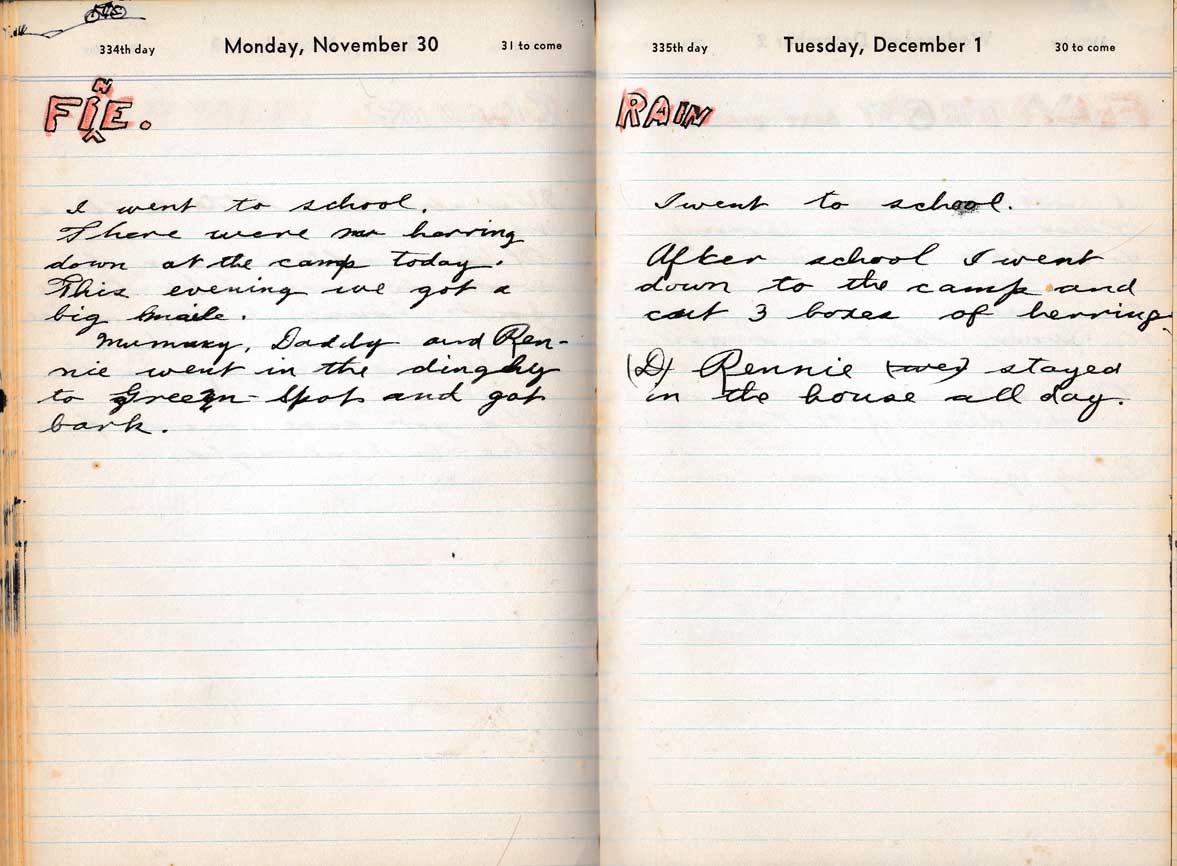 334th day Monday, November 30 31 to come
N
FIE.
I went to school.
There were herring
down at the camp today.
This evening we got a
big
Mummy, Daddy and Ren-
nie went in the dinghy
to Green-Spot and got
bark.
335th day Tuesday, December 1 30 to come
RAIN
I went to school.
After school I went
down to the camp and
cut 3 boxes of herring.
(D) Rennie stayed
in the house all day.